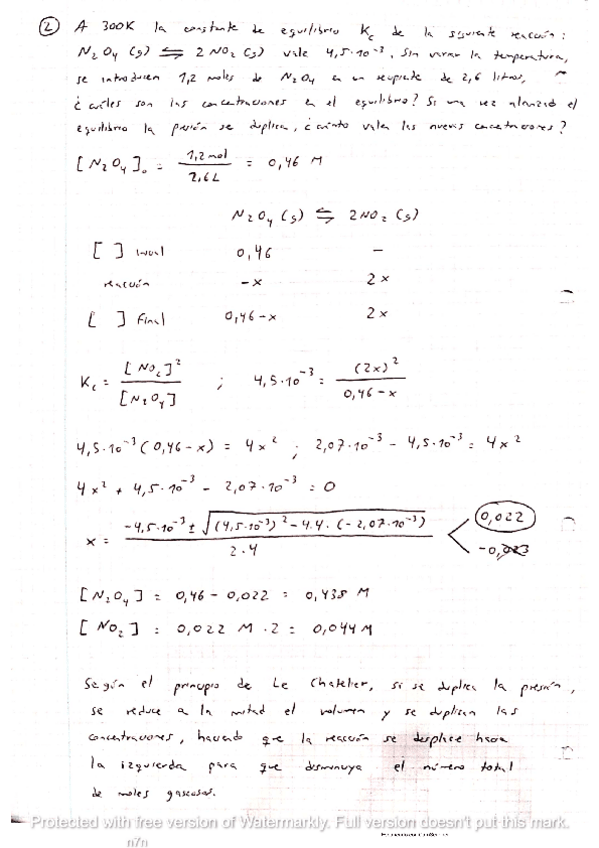 2 A 300K la constante de equilibrio Kc de la siguiente reacción:
N2O4 (g) ⇆ 2 NO2 (g) vale 4,5·10⁻³. Sin variar la temperatura,
se introducen 1,2 moles de N2O4 en un recipiente de 2,6 litros,
¿cuáles son las concentraciones en el equilibrio? Si una vez alcanzado el
equilibrio la presión se duplica, ¿cuánto valen las nuevas concentraciones?
[N2O4]₀ = 1,2 mol / 2,6 L = 0,46 M
N2O4 (g) ⇆ 2NO2 (g)
[ ] inicial 0,46 –
reacción -x 2x
[ ] final 0,46-x 2x
Kc = [NO2]² / [N2O4] ; 4,5·10⁻³ = (2x)² / 0,46-x
4,5·10⁻³ (0,46-x) = 4x² ; 2,07·10⁻³ - 4,5·10⁻³ = 4x²
4x² + 4,5·10⁻³ - 2,07·10⁻³ = 0
x = -4,5·10⁻³ ± √((4,5·10⁻³)² - 4·4·(-2,07·10⁻³)) / 2·4 < 0,022
-0,023
[N2O4] = 0,46 - 0,022 = 0,438 M
[NO2] = 0,022 M · 2 = 0,044 M
Según el principio de Le Chatelier, si se duplica la presión,
se reduce a la mitad el volumen y se duplican las
concentraciones, haciendo que la reacción se desplace hacia
la izquierda para que disminuya el número total
de moles gaseosos.
Protected with free version of Watermarkly. Full version doesn't put this mark.